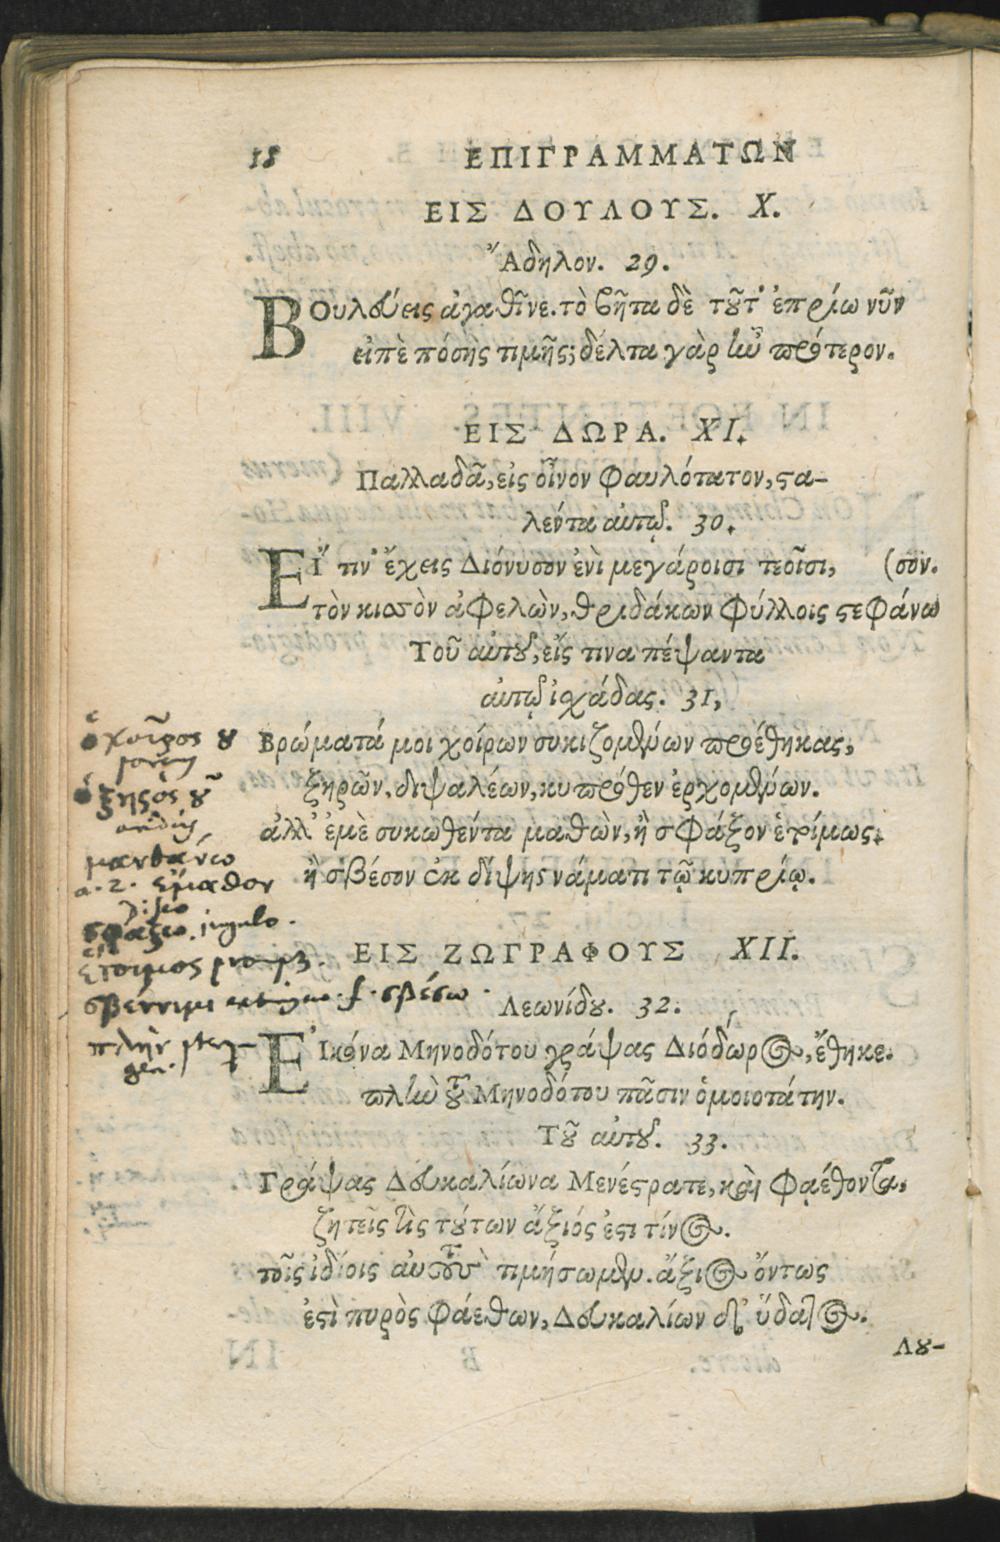 18 ΕΠΙΓΡΑΜΜΑΤΩΝ
ΕΙΣ ΔΟΥΛΟΥΣ. X.
Ἄδηλον. 29.
ΒΟυλεύεις ἀγαθῖνε. τὸ βῆτα δὲ τοῦτ' ἐπρίω νῦν
εἰπὲ πόσης τιμῆς; δέλτα γὰρ ἰῶ πρότερον.
ΕΙΣ ΔΩΡΑ. XI.
Παλλαδᾶ, εἰς οἶνον φαυλότατον, στα-
λέντα αὐτῷ. 30.
ΕἼ τιν' ἔχεις Διόνυσον ἐνὶ μεγάροισι τεοῖσι, (σον.
τὸν κισσὸν ἀφελὼν, θριδάκων φύλλοις στεφάνω
Τοῦ αὐτοῦ, εἴς τινα πέψαντα
αὐτῷ ἰσχάδας. 31,
Βρώματά μοι χοίρων συκιζομένων προέθηκας,
ξηρῶν, διψαλέων, κυπρόθεν ἐρχομένων.
ἀλλ' ἐμὲ συκωθέντα μαθὼν, ἢ σφάξον ἑτοίμως,
ἢ σβέσον ἐκ δίψης νάματι τῷ κυπρίῳ.
ΕΙΣ ΖΩΓΡΑΦΟΥΣ XII.
Λεωνίδου. 32.
ΕἸκόνα Μηνοδότου γράψας Διόδωρος, ἔθηκε.
πλὴν τοῦ Μηνοδότου πᾶσιν ὁμοιοτάτην.
Τοῦ αὐτοῦ. 33.
Γράψας Δευκαλίωνα Μενέστρατε, καὶ Φαέθοντα,
ζητεῖς τὶς τούτων ἄξιός ἐστι τίνος.
τοῖς ἰδίοις αὐτοὺς τιμήσωμεν. ἄξιος ὄντως
ἐστὶ πυρὸς Φάεθων, Δευκαλίων δ' ὕδατος.
Λου-
ὁ χοῖρος ου
ὁ ξηρὸς οῦ
μανθάνω
α. 2. ἔμαθον
σφάξω. iugulo.
ἕτοιμος
σβέννυμι f. σβέσω.
πλὴν
gen.